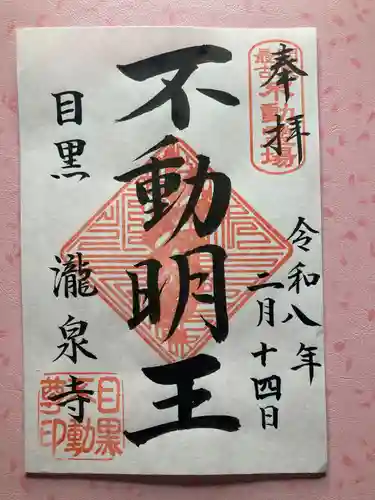 奉拝
關東
最古不動霊場
令和八年
二月十四日
不動明王
目黒 瀧泉寺
目黒
不動
尊印